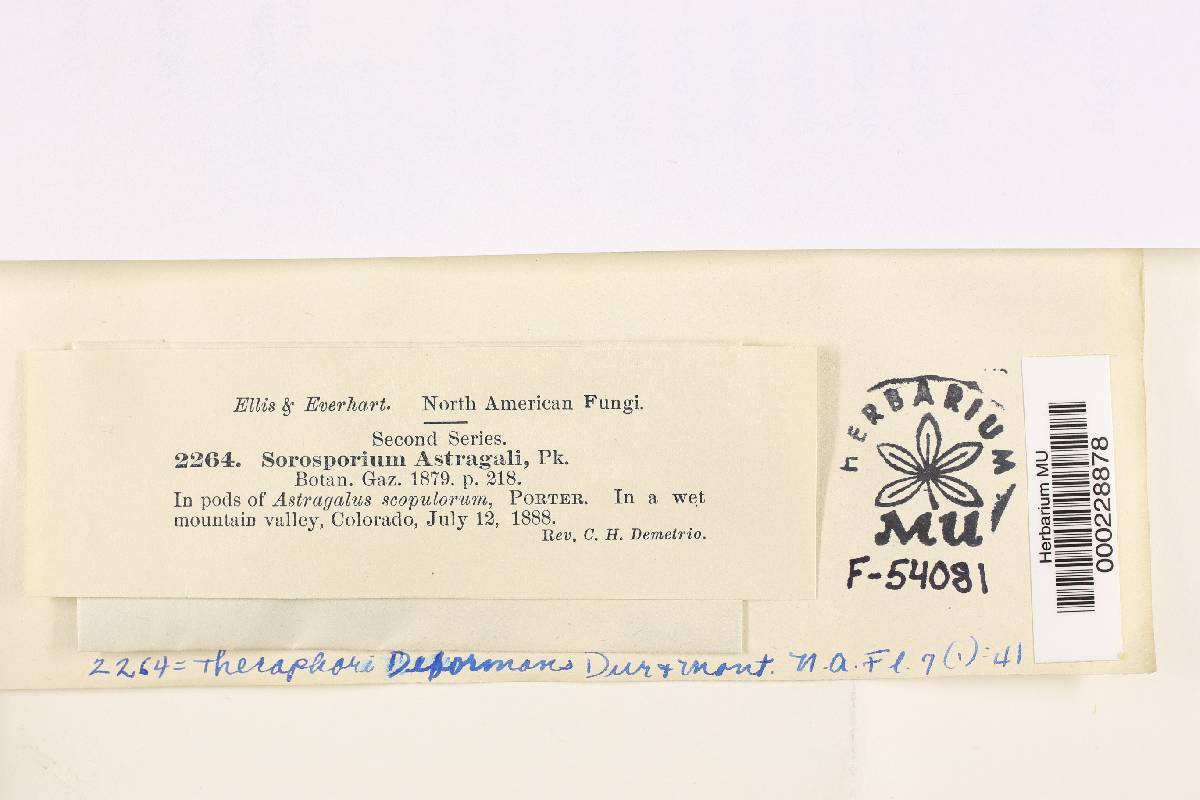 Ellis & Everhart. North American Fungi.
Second Series.
2264. Sorosporium Astragali, Pk.
Botan. Gaz. 1879. p. 218.
In pods of Astragalus scopulorum, PORTER. In a wet
mountain valley, Colorado, July 12, 1888.
Rev. C. H. Demetrio.
HERBARIUM
MU
F-54081
Herbarium MU
000228878
2264 = Thecaphora Deformans Dur & Mont. N.A. Fl. 7(1):41